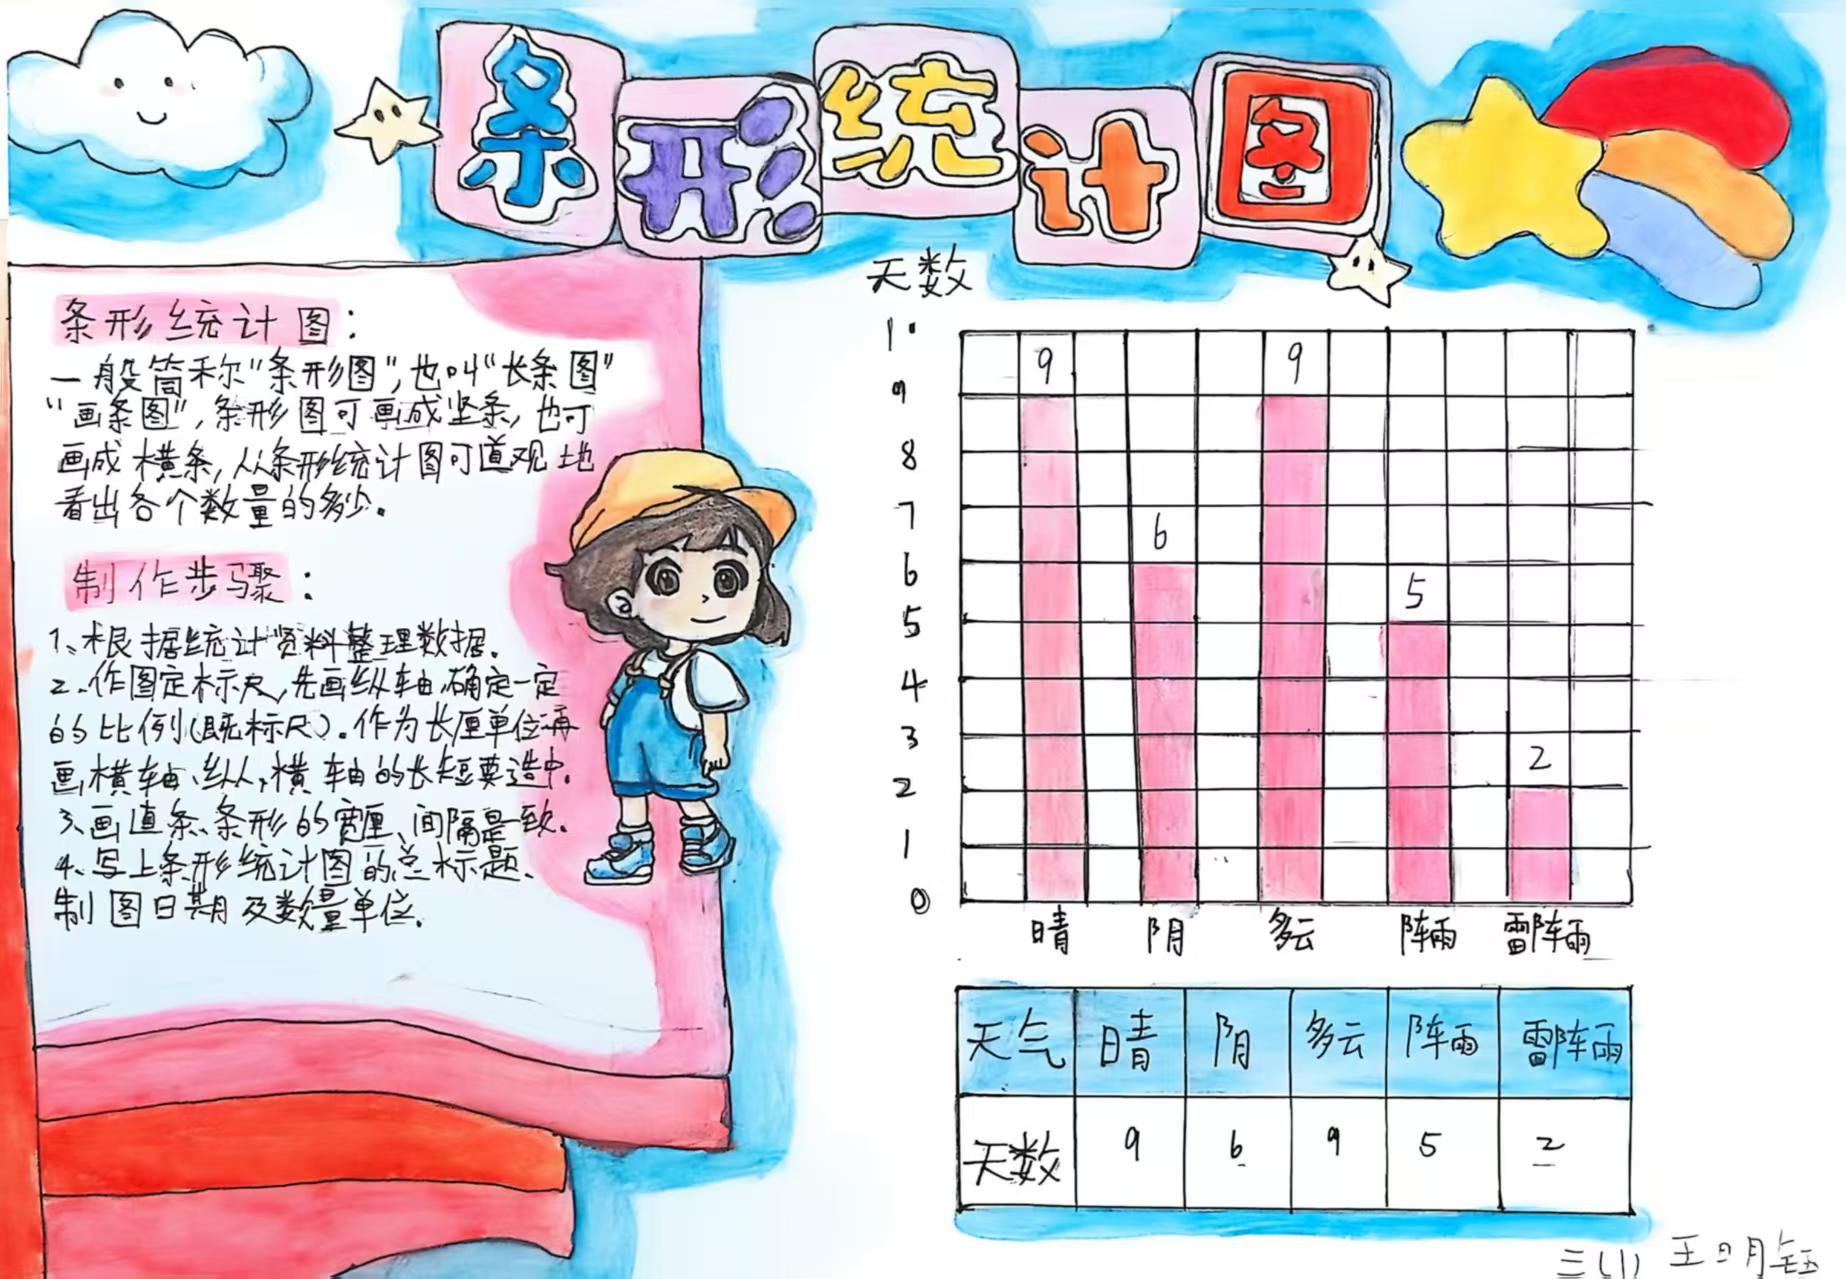 条形统计图
条形统计图：
一般简称“条形图”，也叫“长条图”
“画条图”，条形图可画成坚条，也可
画成横条，从条形统计图可道观地
看出各个数量的多少。
制作步骤：
1、根据统计资料整理数据。
2、作图定标尺，先画纵轴，确定一定
的比例(既标尺)。作为长厘单位再
画横轴、纵、横轴的长短要适中。
3、画直条、条形的宽厘、间隔是致。
4、写上条形统计图的总标题、
制图日期及数量单位。
天数
10
9
8
7
6
5
4
3
2
1
0
9
6
9
5
2
晴 阴 多云 阵雨 雷阵雨
天气 晴 阴 多云 阵雨 雷阵雨
天数 9 6 9 5 2
三(1) 王明钰